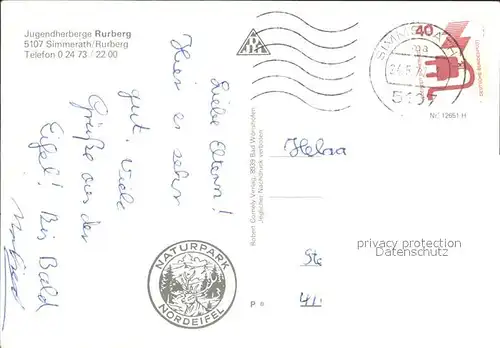 Jugendherberge Rurberg
5107 Simmerath/Rurberg
Telefon 0 24 73 / 22 00
Liebe Eltern!
Hier es sehr
gut. Viele
Grüße aus der
Eifel! Bis Bald
NATURPARK
NORDEIFEL
Robert Gomely Verlag, 8939 Bad Wörishofen
Jeglicher Nachdruck verboten
P 8
SIMMERATH
5107
40
DEUTSCHE BUNDESPOST
Nr. 12651 H
Helsa
privacy protection
Datenschutz